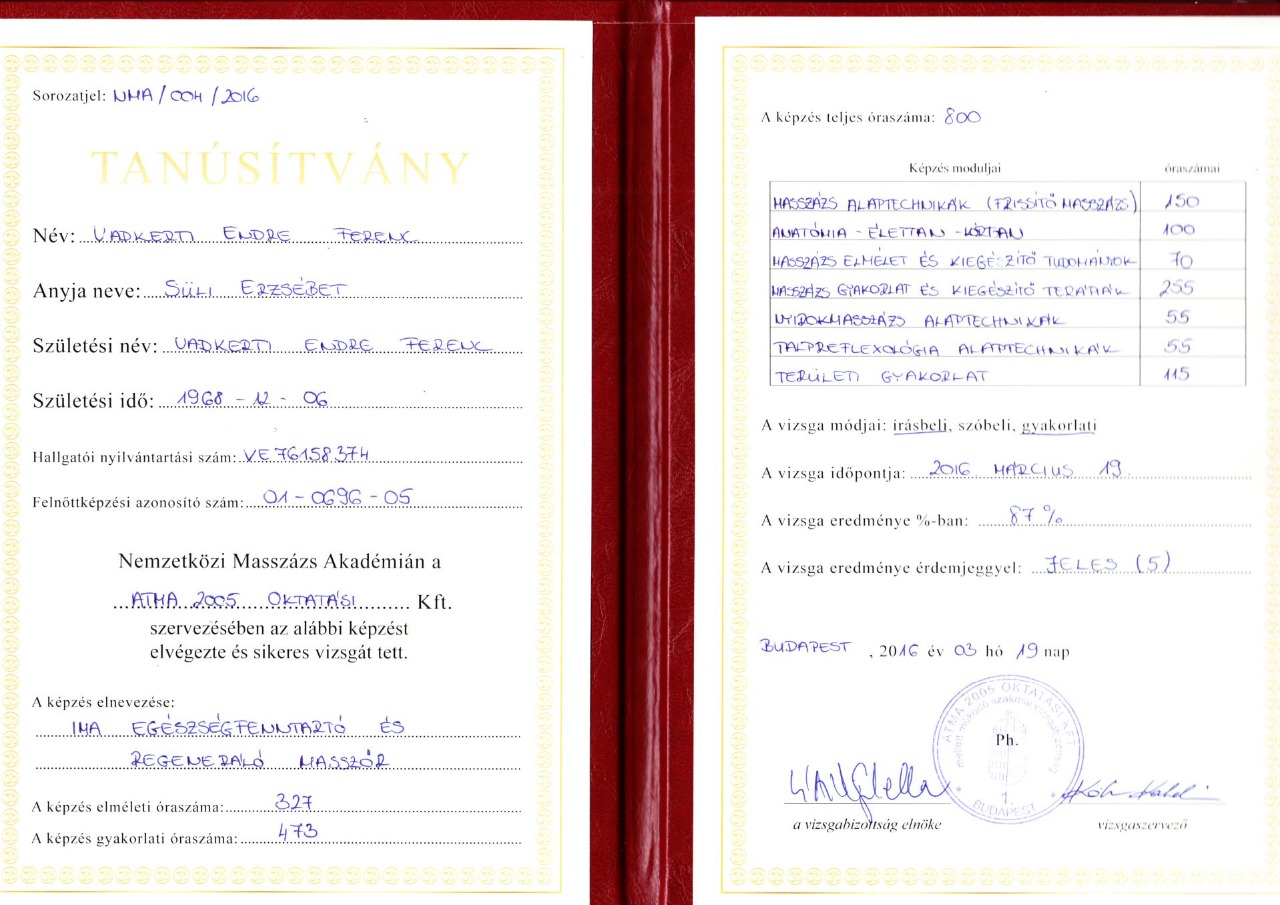 Sorozatjel: NMA/004/2016
TANÚSÍTVÁNY
Név: VADKERTI ENDRE FERENC
Anyja neve: SÜLI ERZSÉBET
Születési név: VADKERTI ENDRE FERENC
Születési idő: 1968-12-06
Hallgatói nyilvántartási szám: VE76158374
Felnőttképzési azonosító szám: 01-0696-05
Nemzetközi Masszázs Akadémián a
ATMA 2005 OKTATÁSI Kft.
szervezésében az alábbi képzést
elvégezte és sikeres vizsgát tett.
A képzés elnevezése:
IMA EGÉSZSÉGFENNTARTÓ ÉS
REGENERÁLÓ MASSZŐR
A képzés elméleti óraszáma: 327
A képzés gyakorlati óraszáma: 473
A képzés teljes óraszáma: 800
Képzés moduljai óraszámai
MASSZÁZS ALAPTECHNIKÁK (FRISSÍTŐ MASSZÁZS) 150
ANATÓMIA - ÉLETTAN - KÓRTAN 100
MASSZÁZS ELMÉLET ÉS KIEGÉSZÍTŐ TUDOMÁNYOK 70
MASSZÁZS GYAKORLAT ÉS KIEGÉSZÍTŐ TERÁPIÁK 255
NYIROKMASSZÁZS ALAPTECHNIKÁK 55
TALPREFLEXOLÓGIA ALAPTECHNIKÁK 55
TERÜLETI GYAKORLAT 115
A vizsga módjai: írásbeli, szóbeli, gyakorlati
A vizsga időpontja: 2016 MÁRCIUS 19
A vizsga eredménye %-ban: 87%
A vizsga eredménye érdemjeggyel: JELES (5)
BUDAPEST, 2016 év 03 hó 19 nap
ATMA 2005 OKTATÁSI KFT
mellett működő szakmai vizsgabizottság
Ph.
1.
BUDAPEST
a vizsgabizottság elnöke
vizsgaszervező